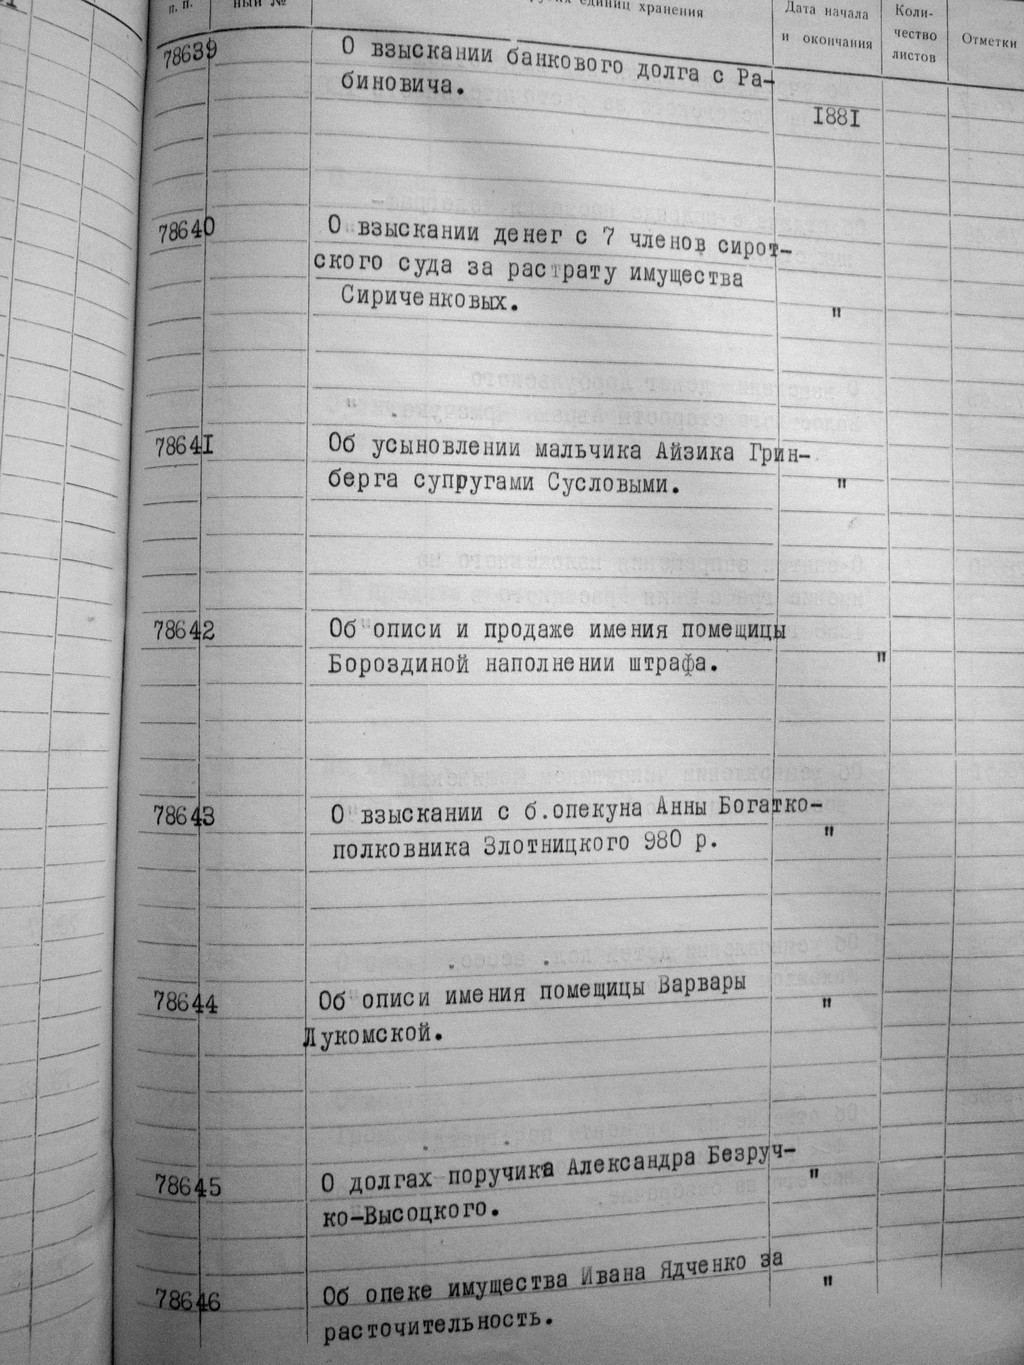 п. п.
ный №
единиц хранения
Дата начала
и окончания
Коли-
чество
листов
Отметки
78639
О взыскании банкового долга с Ра-
биновича.
I88I
78640
О взыскании денег с 7 членов сирот-
ского суда за растрату имущества
Сириченковых.
"
7864I
Об усыновлении мальчика Айзика Грин-
берга супругами Сусловыми.
"
78642
Об описи и продаже имения помещицы
Бороздиной наполнении штрафа.
"
78643
О взыскании с б.опекуна Анны Богатко-
полковника Злотницкого 980 р.
"
78644
Об описи имения помещицы Варвары
Лукомской.
"
78645
О долгах поручика Александра Безруч-
ко-Высоцкого.
"
78646
Об опеке имущества Ивана Ядченко за
расточительность.
"